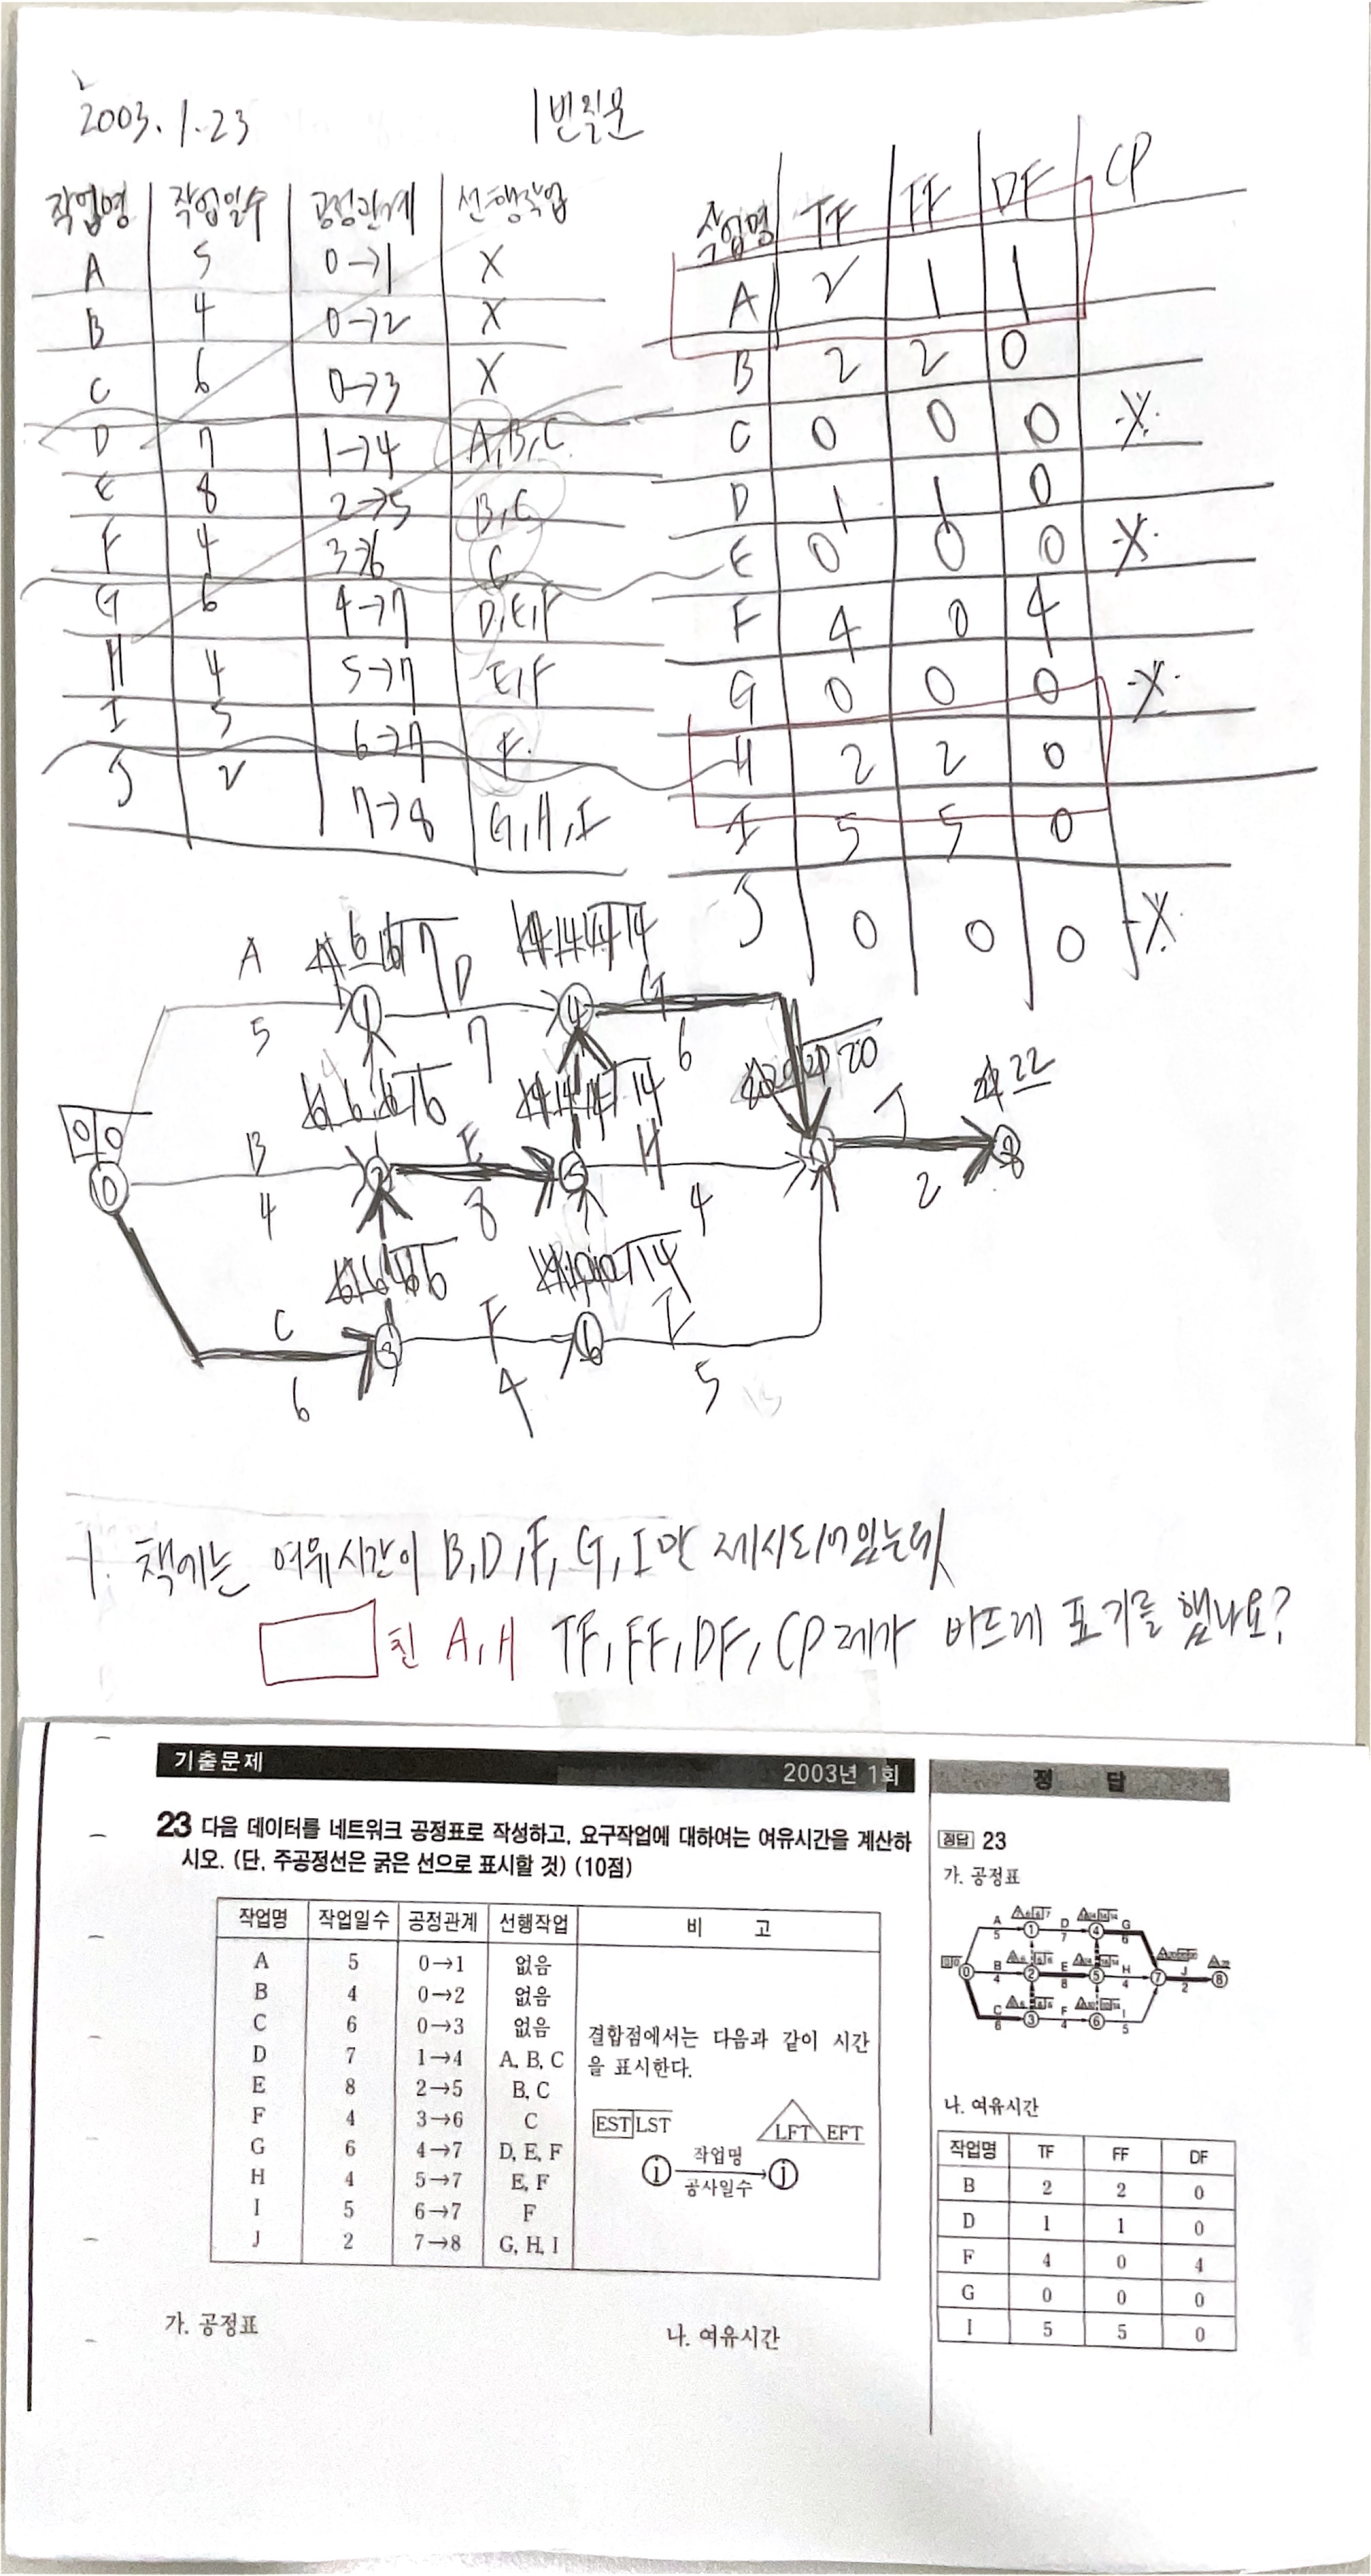 2003.1.23
1번질문
작업명 작업일수 공정관계 선행작업
A 5 0→1 X
B 4 0→2 X
C 6 0→3 X
D 7 1→4 A,B,C
E 8 2→5 B,C
F 4 3→6 C
G 6 4→7 D,E,F
H 4 5→7 E,F
I 5 6→7 F
J 2 7→8 G,H,I
작업명 TF FF DF CP
A 2 1 1
B 2 2 0
C 0 0 0 ※
D 1 1 0
E 0 0 0 ※
F 4 0 4
G 0 0 0 ※
H 2 2 0
I 5 5 0
J 0 0 0 ※
A 5 1 D 7 4 G 6
0 0 0 B 4 2 E 8 5 H 4 7 J 2 8
C 6 3 F 4 6 I 5
1. 책에는 여유시간이 B,D,F,G,I만 제시되어있는데
친 A,H TF,FF,DF,CP 제가 바르게 표기를 했나요?
기출문제 2003년 1회
23 다음 데이터를 네트워크 공정표로 작성하고, 요구작업에 대하여는 여유시간을 계산하
시오. (단, 주공정선은 굵은 선으로 표시할 것) (10점)
작업명 작업일수 공정관계 선행작업 비 고
A 5 0→1 없음
B 4 0→2 없음
C 6 0→3 없음
D 7 1→4 A, B, C
E 8 2→5 B, C
F 4 3→6 C
G 6 4→7 D, E, F
H 4 5→7 E, F
I 5 6→7 F
J 2 7→8 G, H, I
결합점에서는 다음과 같이 시간
을 표시한다.
EST LST LFT EFT
i 작업명 j
공사일수
가. 공정표 나. 여유시간
정 답
정답 23
가. 공정표
A 5 1 D 7 4 G 6
0 B 4 2 E 8 5 H 4 7 J 2 8
C 6 3 F 4 6 I 5
나. 여유시간
작업명 TF FF DF
B 2 2 0
D 1 1 0
F 4 0 4
G 0 0 0
I 5 5 0